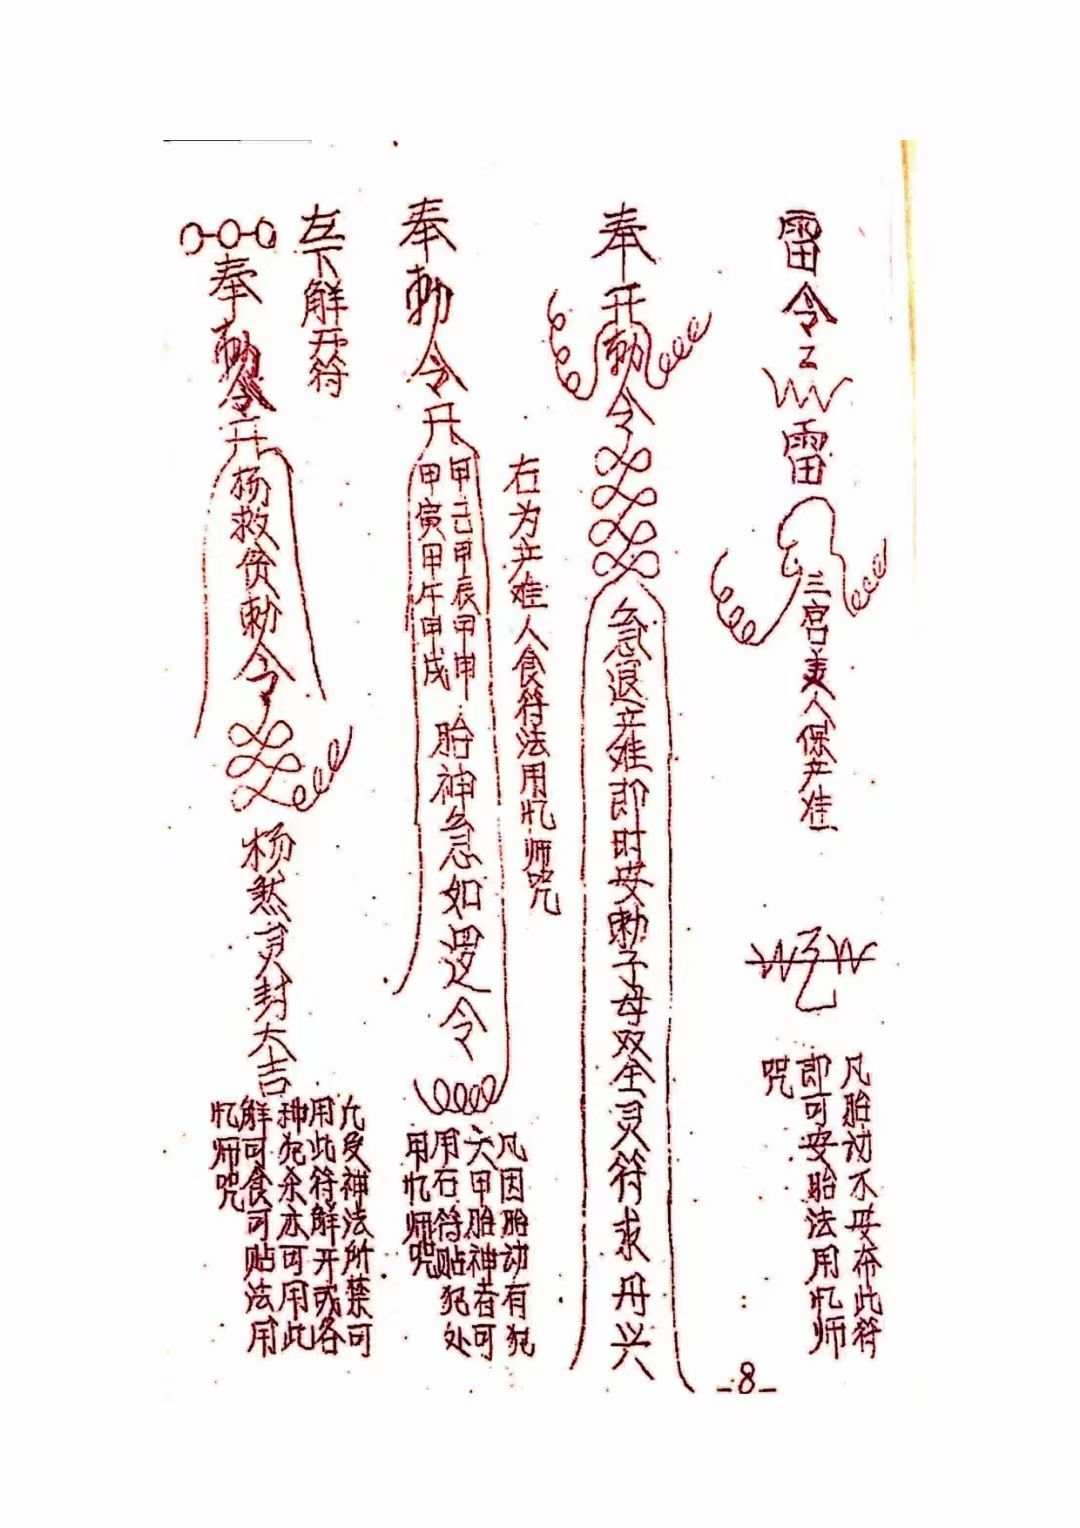 雷令
雷
三宫美人保产难
凡胎动不安布此符
即可安胎法用忆师
咒
奉开勅令
急退产难即时安勅子母双全灵符求丹兴
右为产难人食符法用忆师咒
奉勅令开
甲子甲辰甲申
甲寅甲午甲戌
胎神急如逻令
凡因胎动有犯
六甲胎神者可
用石符贴犯处
用忆师咒
左下解开符
奉勅令开
杨救贫勅令
杨煞灵封大吉
凡受神法所禁可
用此符解开或各
种犯杀亦可用此
解可食可贴法用
忆师咒
-8-